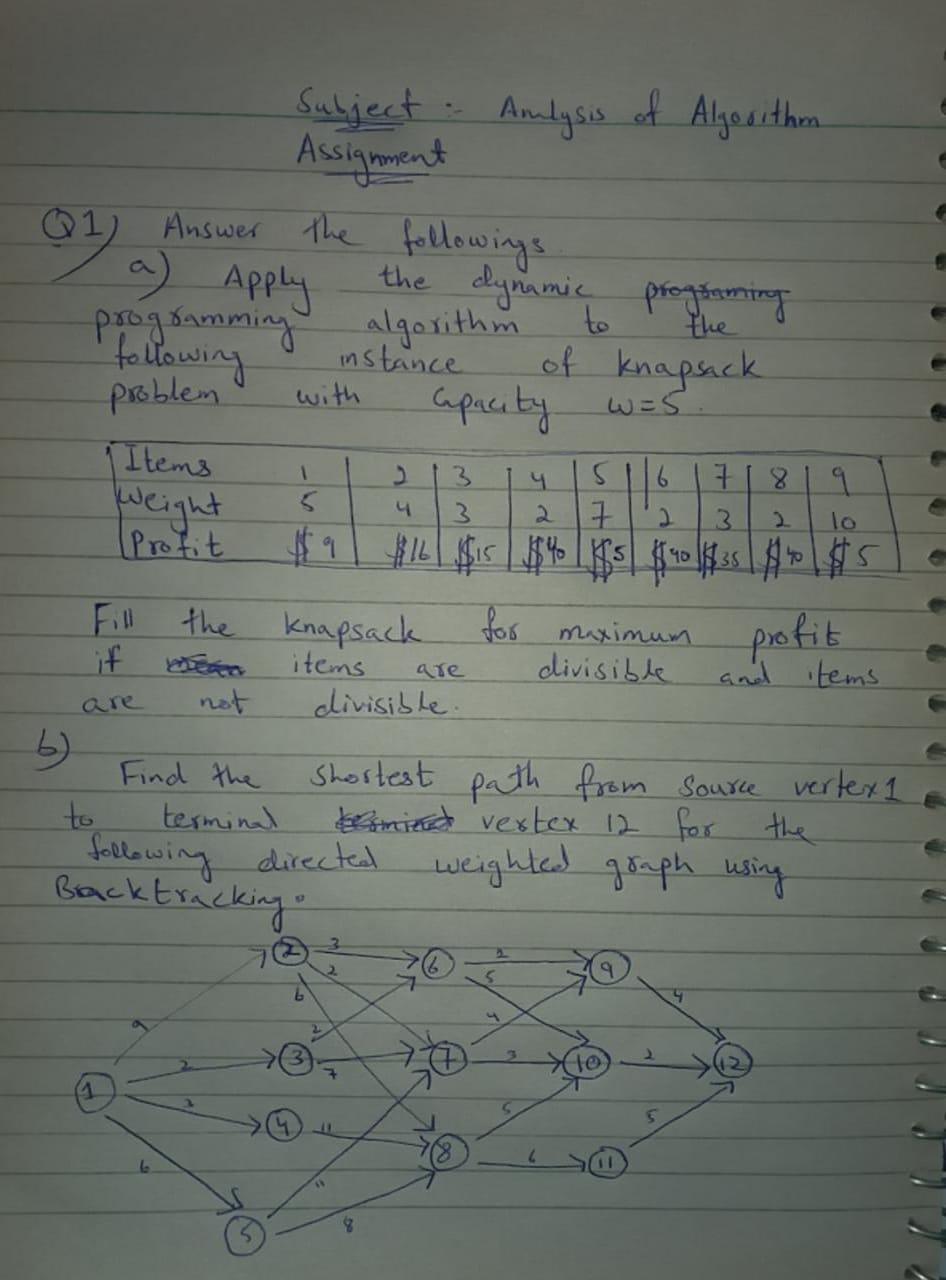 Subject :- Analysis of Algorithm
Assignment
Q1) Answer the followings
a) Apply the dynamic programing
programming algorithm to the
following instance of knapsack
problem with Capacity w=5.
Items 1 2 3 4 5 6 7 8 9
Weight 5 4 3 2 7 2 3 2 10
Profit $9 $16 $15 $40 $5 $40 $35 $40 $5
Fill the knapsack for maximum profit
if items are divisible and items
are not divisible.
b)
Find the shortest path from source vertex 1
to terminal vertex 12 for the
following directed weighted graph using
Backtracking.
2 3 6 2 9
2 5
6 4 4
9 2
2 3 7 7 3 10 2 12
1
3 4 11 5 5
8 6 11
6
5 11
8